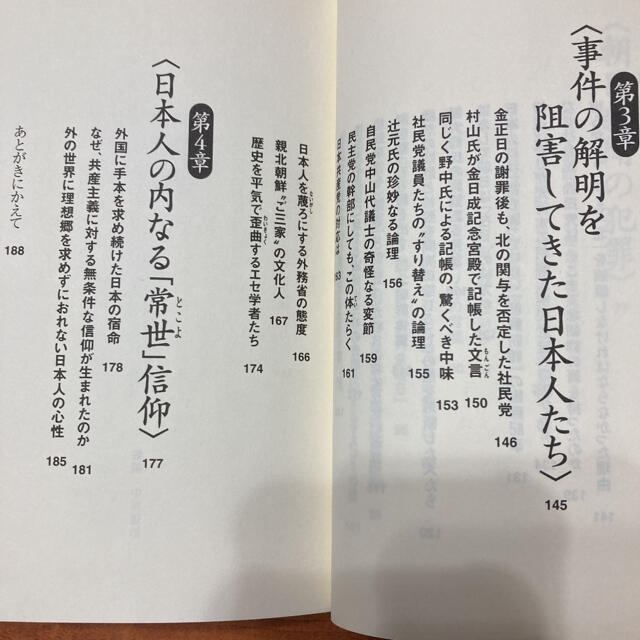 第3章
〈事件の解明を
阻害してきた日本人たち〉 145
金正日の謝罪後も、北の関与を否定した社民党 146
村山氏が金日成記念宮殿で記帳した文言 150
もんごん
同じく野中氏による記帳の、驚くべき中味 153
社民党議員たちの〝すり替え〟の論理 155
辻元氏の珍妙なる論理 156
自民党中山代議士の奇怪なる変節 159
民主党の幹部にしても、この体たらく 161
日本共産党の対応は 163
日本人を蔑ろにする外務省の態度 166
ないがし
親北朝鮮〝ご三家〟の文化人 167
歴史を平気で歪曲するエセ学者たち 174
わいきょく
第4章
〈日本人の内なる「常世」信仰〉 177
とこよ
外国に手本を求め続けた日本の宿命 178
なぜ、共産主義に対する無条件な信仰が生まれたのか 181
外の世界に理想郷を求めずにおれない日本人の心性 185
あとがきにかえて 188